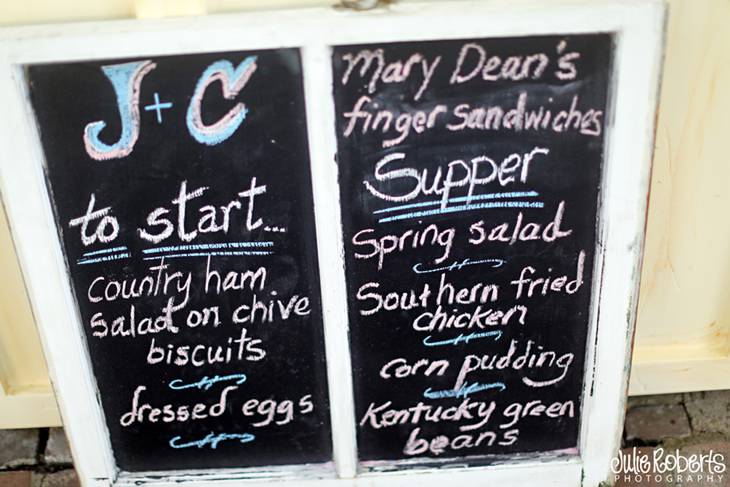 J + C
to start...
Country ham
salad on chive
biscuits
dressed eggs
Mary Dean's
finger sandwiches
Supper
Spring salad
Southern fried
chicken
corn pudding
Kentucky green
beans
Julie Roberts
PHOTOGRAPHY